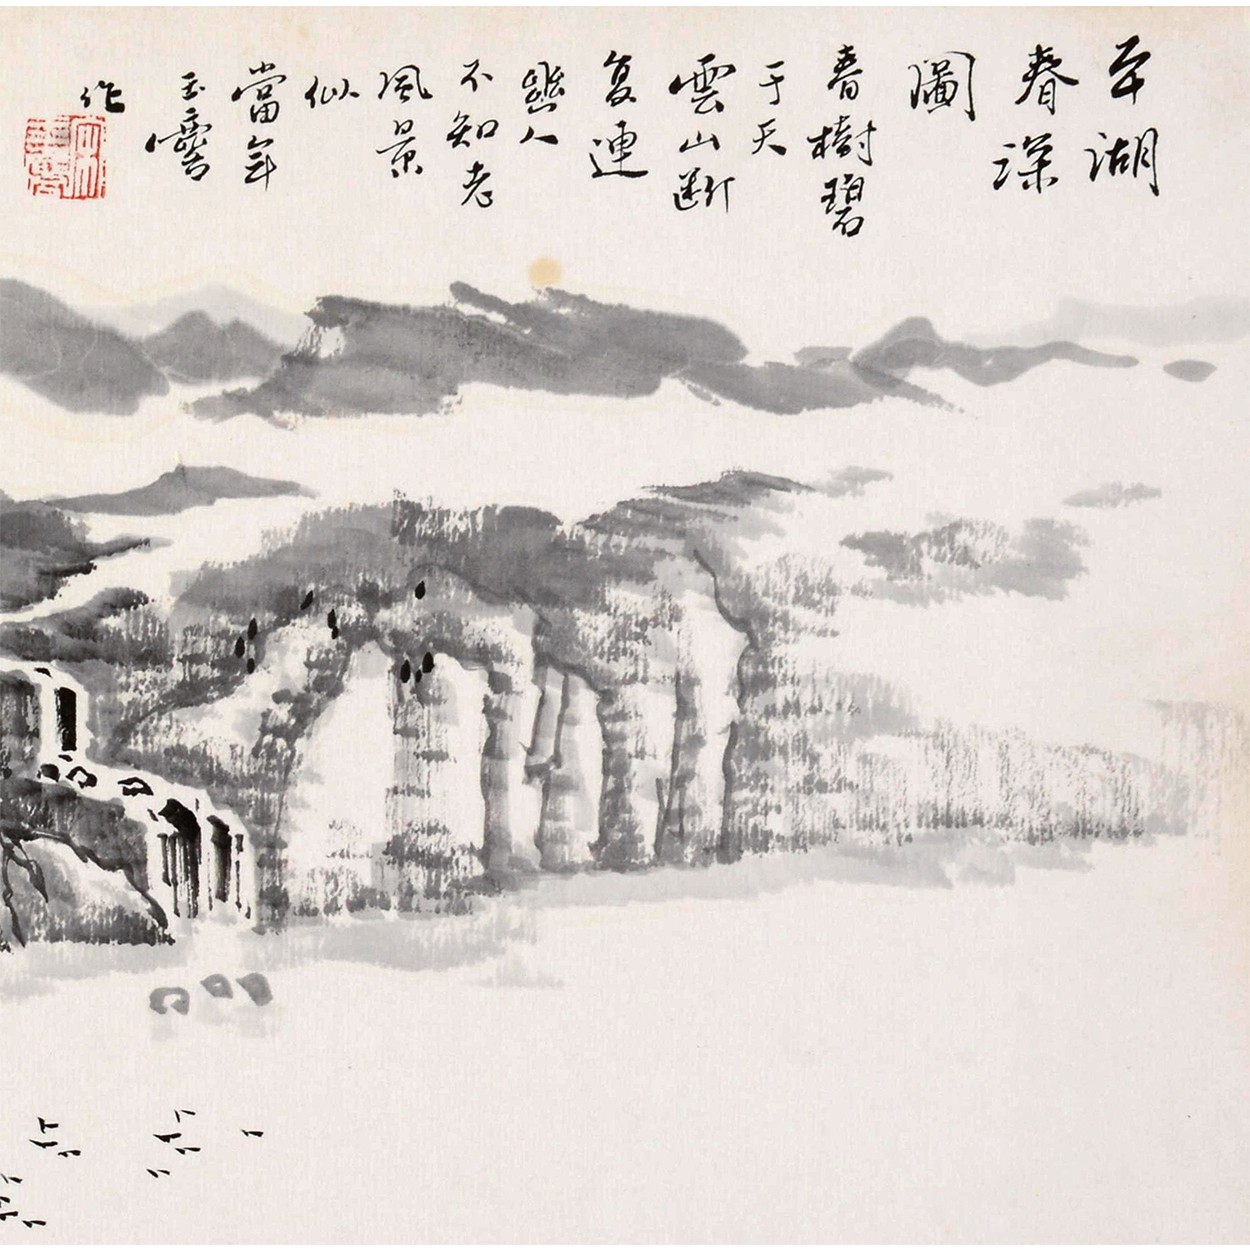 平湖
春深
圖
春樹碧
于天
雲山斷
复連
幽人
不知老
風景
似
當年
玉麐
作
宋玉麐